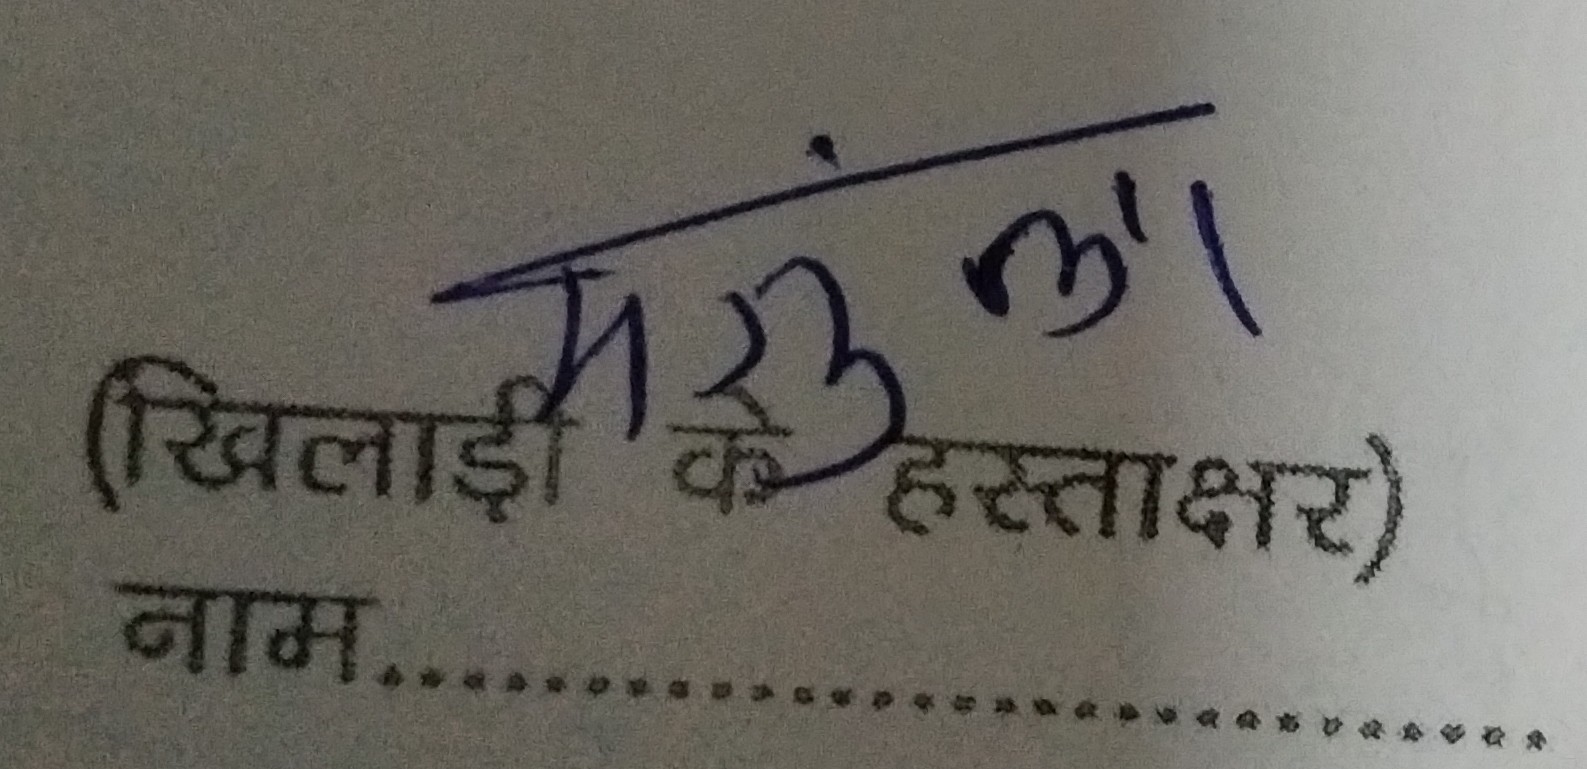 (खिलाड़ी के हस्ताक्षर)
नाम.............................